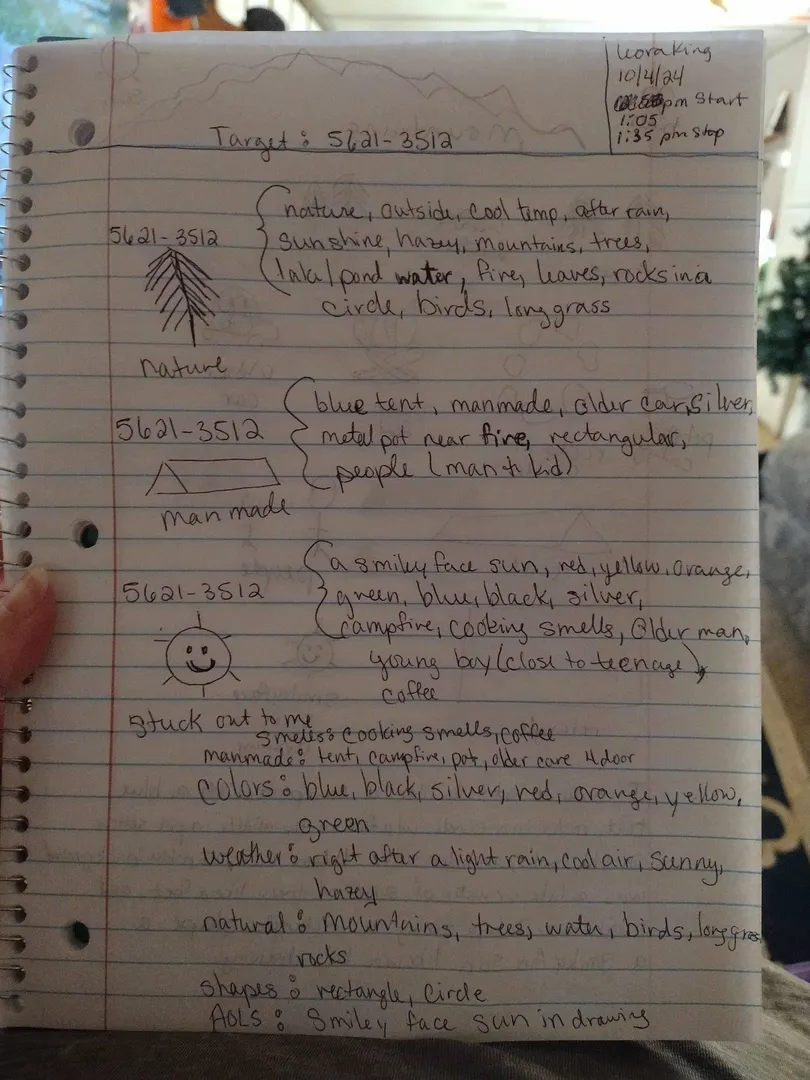 Leora King
10/4/24
pm Start
1:05
1:35 pm Stop
Target: 5621-3512
5621-3512
nature, outside, cool temp, after rain,
sunshine, hazey, mountains, trees,
lake/pond water, fire, leaves, rocks in a
circle, birds, long grass
nature
5621-3512
blue tent, manmade, older car, silver,
metal pot near fire, rectangular,
people (man & kid)
man made
5621-3512
a smiley face sun, red, yellow, orange,
green, blue, black, silver,
campfire, cooking smells, older man,
young boy (close to teenage),
coffee
Stuck out to me
smells: cooking smells, coffee
manmade: tent, campfire, pot, older care 4 door
colors: blue, black, silver, red, orange, yellow,
green
weather: right after a light rain, cool air, sunny,
hazey
natural: mountains, trees, water, birds, long grass
rocks
shapes: rectangle, circle
AOLS: Smiley face sun in drawing